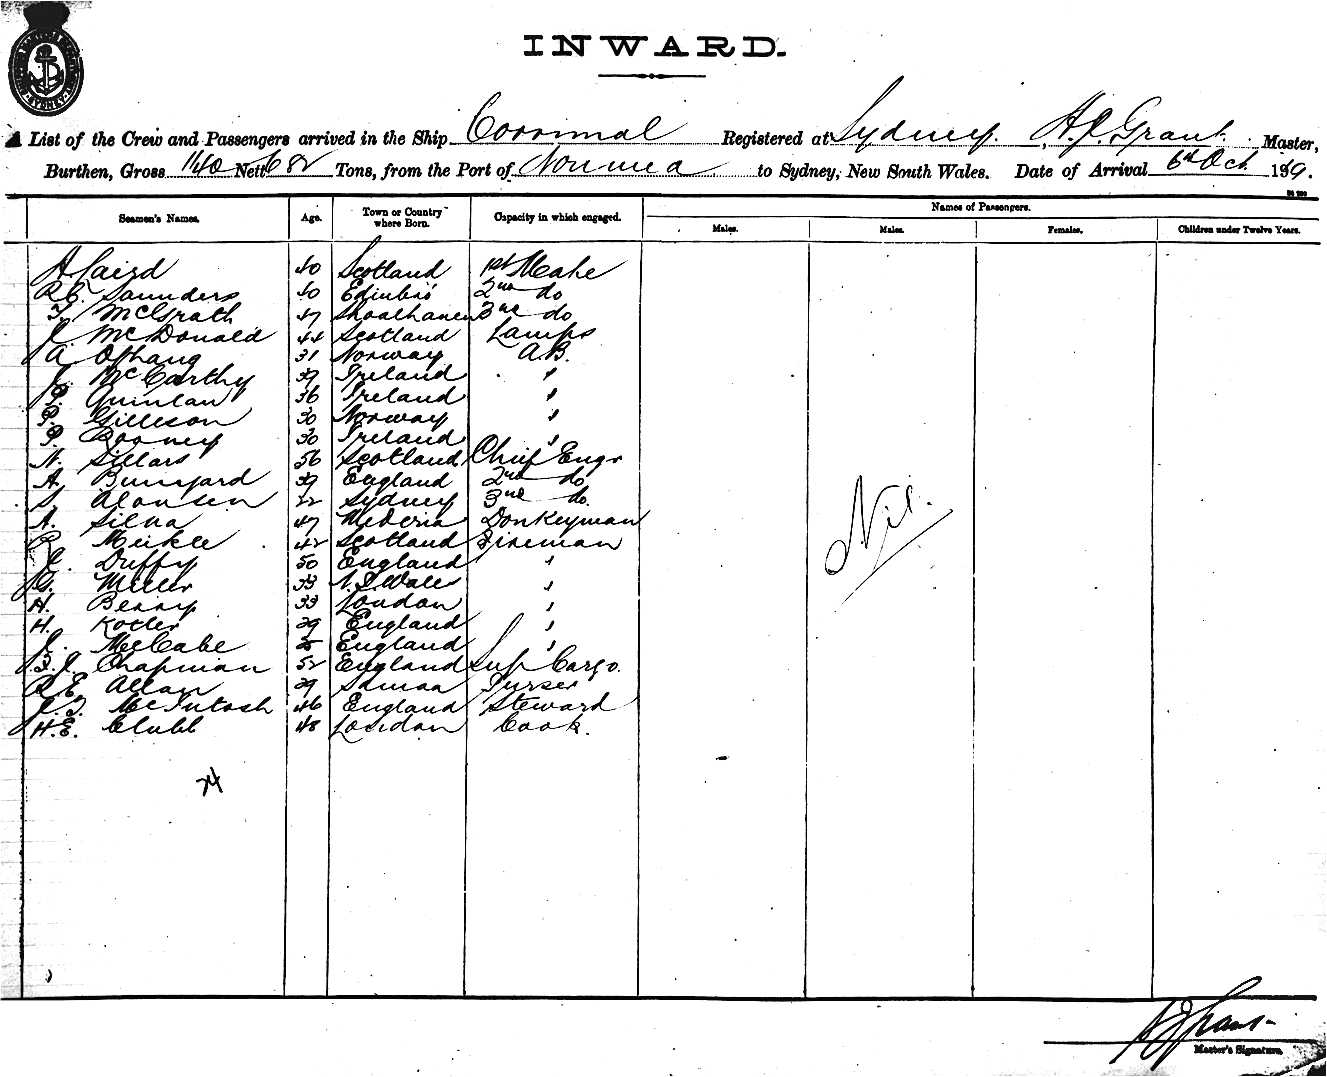 SYDNEY
INWARD.
A List of the Crew and Passengers arrived in the Ship Corrimal Registered at Sydney. H. J. Grant Master,
Burthen, Gross 1140 Nett 682 Tons, from the Port of Noumea to Sydney, New South Wales. Date of Arrival 6th Oct 189
Seamen's Names. Age. Town or Country where Born. Capacity in which engaged. Names of Passengers.
Males. Males. Females. Children under Twelve Years.
A Laird 40 Scotland 1st Mate
R.C. Saunders 40 Edinbro' 2nd do
T. McGrath 47 Shoalhaven 3rd do
J. McDonald 44 Scotland Lamps
A. Ofhaug 31 Norway A.B.
J. McCarthy 39 Ireland "
P. Quinlan 36 Ireland "
P. Gilleson 30 Norway "
P. Rooney 30 Ireland "
N. Sillars 56 Scotland Chief Engr
A. Bunyard 39 England 2nd do
S. 22 Sydney 3rd do.
A. Silva 47 Mederia Donkeyman
Meikle 42 Scotland Fireman
J. Duffy 50 England "
G. Miller 33 N.S. Wales "
H. Berry 33 London "
H. Kotler 39 England "
J. McCabe England "
F. J. Chapman 52 England Sup Cargo.
R.E. Allan 39 Samoa Purser
J. T. McIntosh 46 England Steward
H.E. Clubb 48 London Cook.
Nil.
24
H J Grant
Master's Signature.